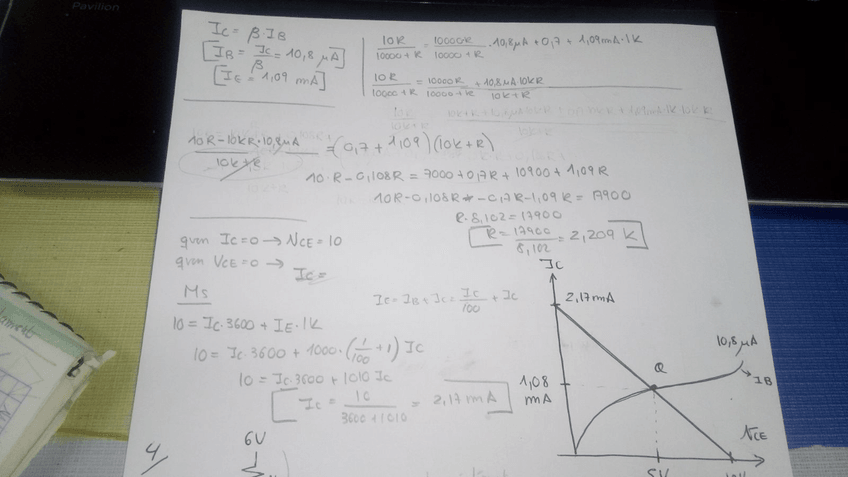 Pavilion
Ic = β·IB
[IB = Ic/β = 10,8 μA]
[IE = 1,09 mA]
10R/(10000+R) = 10000R/(10000+R) · 10,8μA + 0,7 + 1,09mA·1K
10R/(10000+R) = 10000R/(10000+R) + 10,8μA 10KR/(10K+R)
(10R - 10KR·10,8μA)/(10K+R) = (0,7 + 1,09)(10K+R)
10·R - 0,108R = 7000 + 0,7R + 10900 + 1,09R
10R - 0,108R - 0,7R - 1,09R = 17900
R·8,102 = 17900
[R = 17900/8,102 = 2,209 K]
quan Ic = 0 → VCE = 10
quan VCE = 0 → Ic =
Ms
IE = IB + Ic = Ic/100 + Ic
10 = Ic·3600 + IE·1K
10 = Ic·3600 + 1000·(1/100 + 1) Ic
10 = Ic·3600 + 1010 Ic
[Ic = 10/(3600+1010) = 2,17 mA]
Ic
2,17 mA
10,8 μA
Q
IB
1,08 mA
VCE
5V
10V
4/
6V